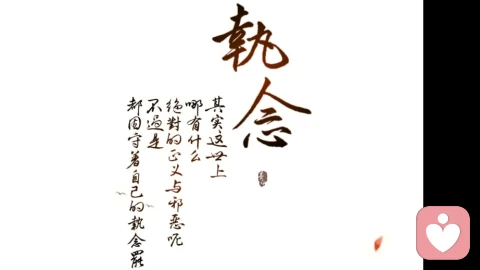 執念
其实这世上
哪有什么
绝對的正义与邪恶呢
不過是
都固守着自己的執念罷